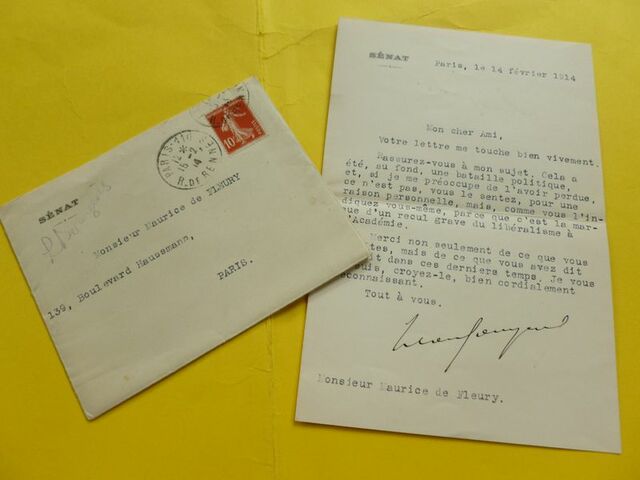 SÉNAT
Monsieur Maurice de FLEURY
139, Boulevard Haussmann,
PARIS.
PARIS-110
R. DE RENNES
10
SÉNAT
Paris, le 14 février 1914
Mon cher Ami,
Votre lettre me touche bien vivement.
Rassurez-vous à mon sujet. Cela a
été, au fond, une bataille politique,
et, si je me préoccupe de l'avoir perdue,
ce n'est pas, vous le sentez, pour une
raison personnelle, mais, comme vous l'in-
diquez vous-même, parce que c'est la mar-
que d'un recul grave du libéralisme à
l'Académie.
Merci non seulement de ce que vous
tes, mais de ce que vous avez dit
it dans ces derniers temps. Je vous
suis, croyez-le, bien cordialement
econnaissant.
Tout à vous.
Monsieur Maurice de Fleury.